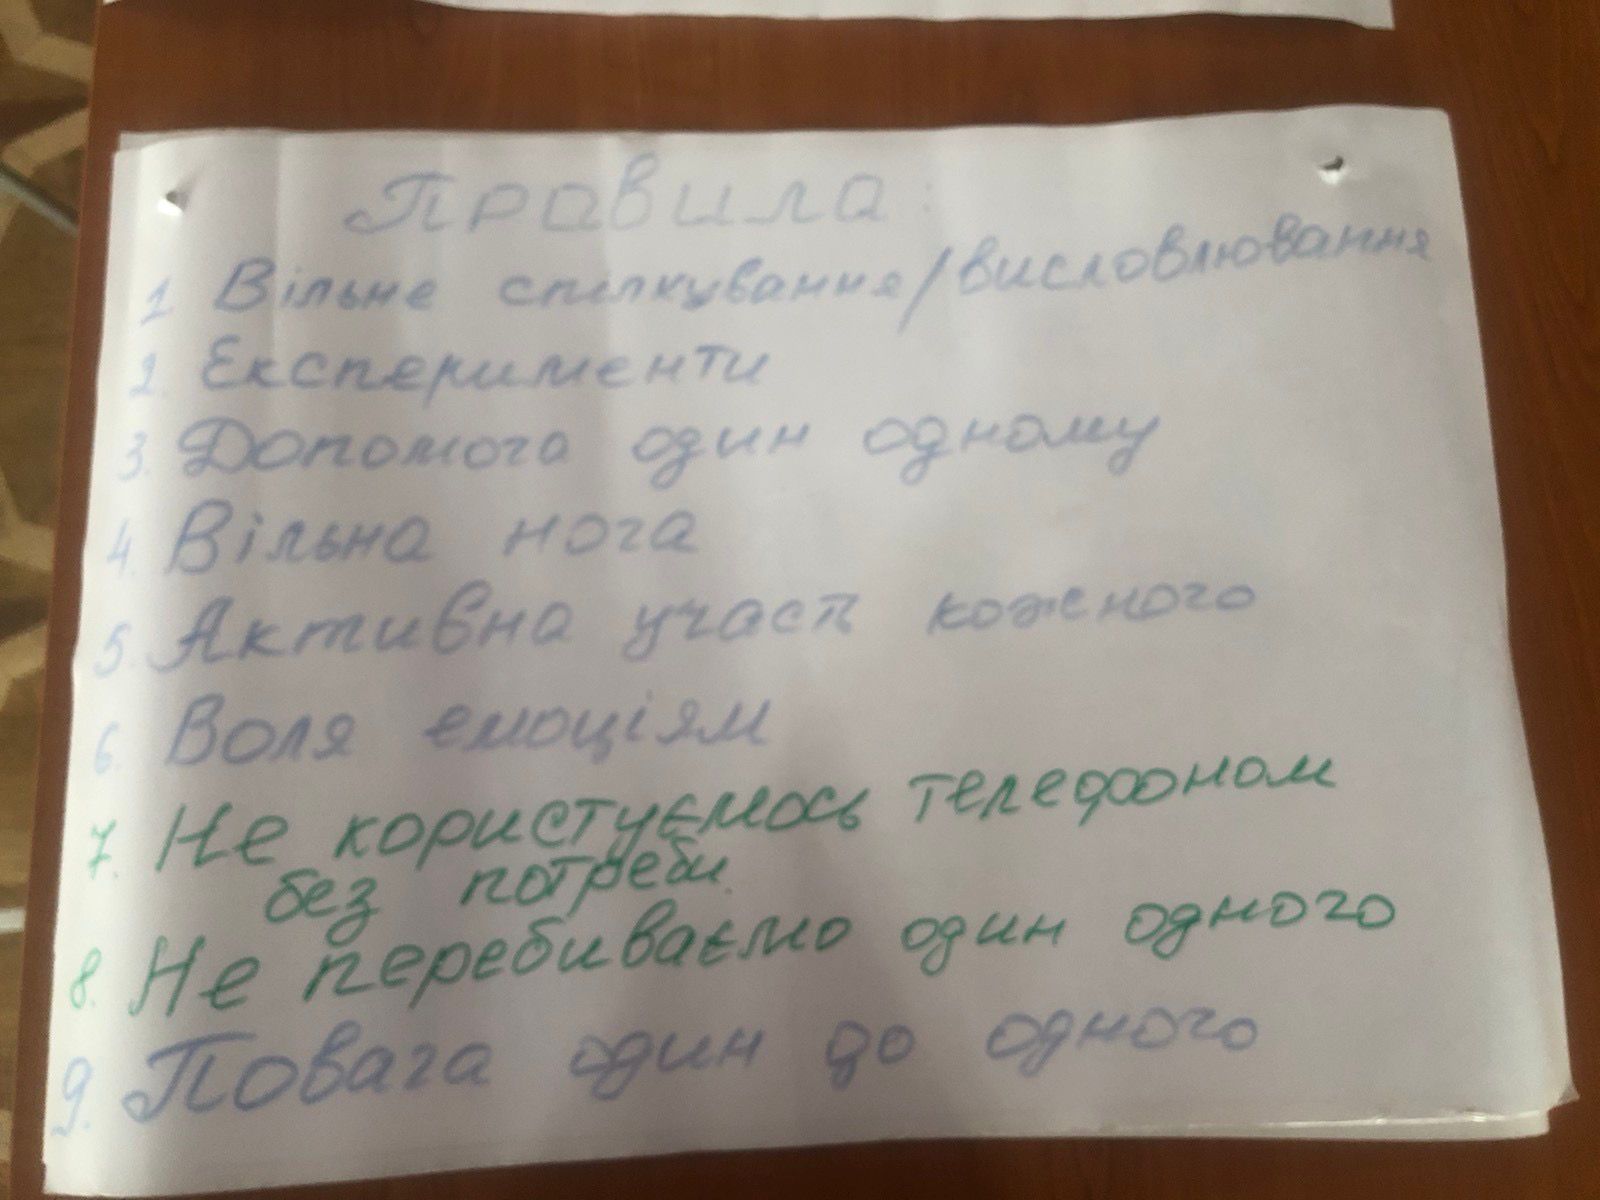 Правила:
1. Вільне спілкування/висловлювання
2. Експерименти
3. Допомога один одному
4. Вільна нога
5. Активна участь кожного
6. Воля емоціям
7. Не користуємось телефоном
без потреби.
8. Не перебиваємо один одного
9. Повага один до одного